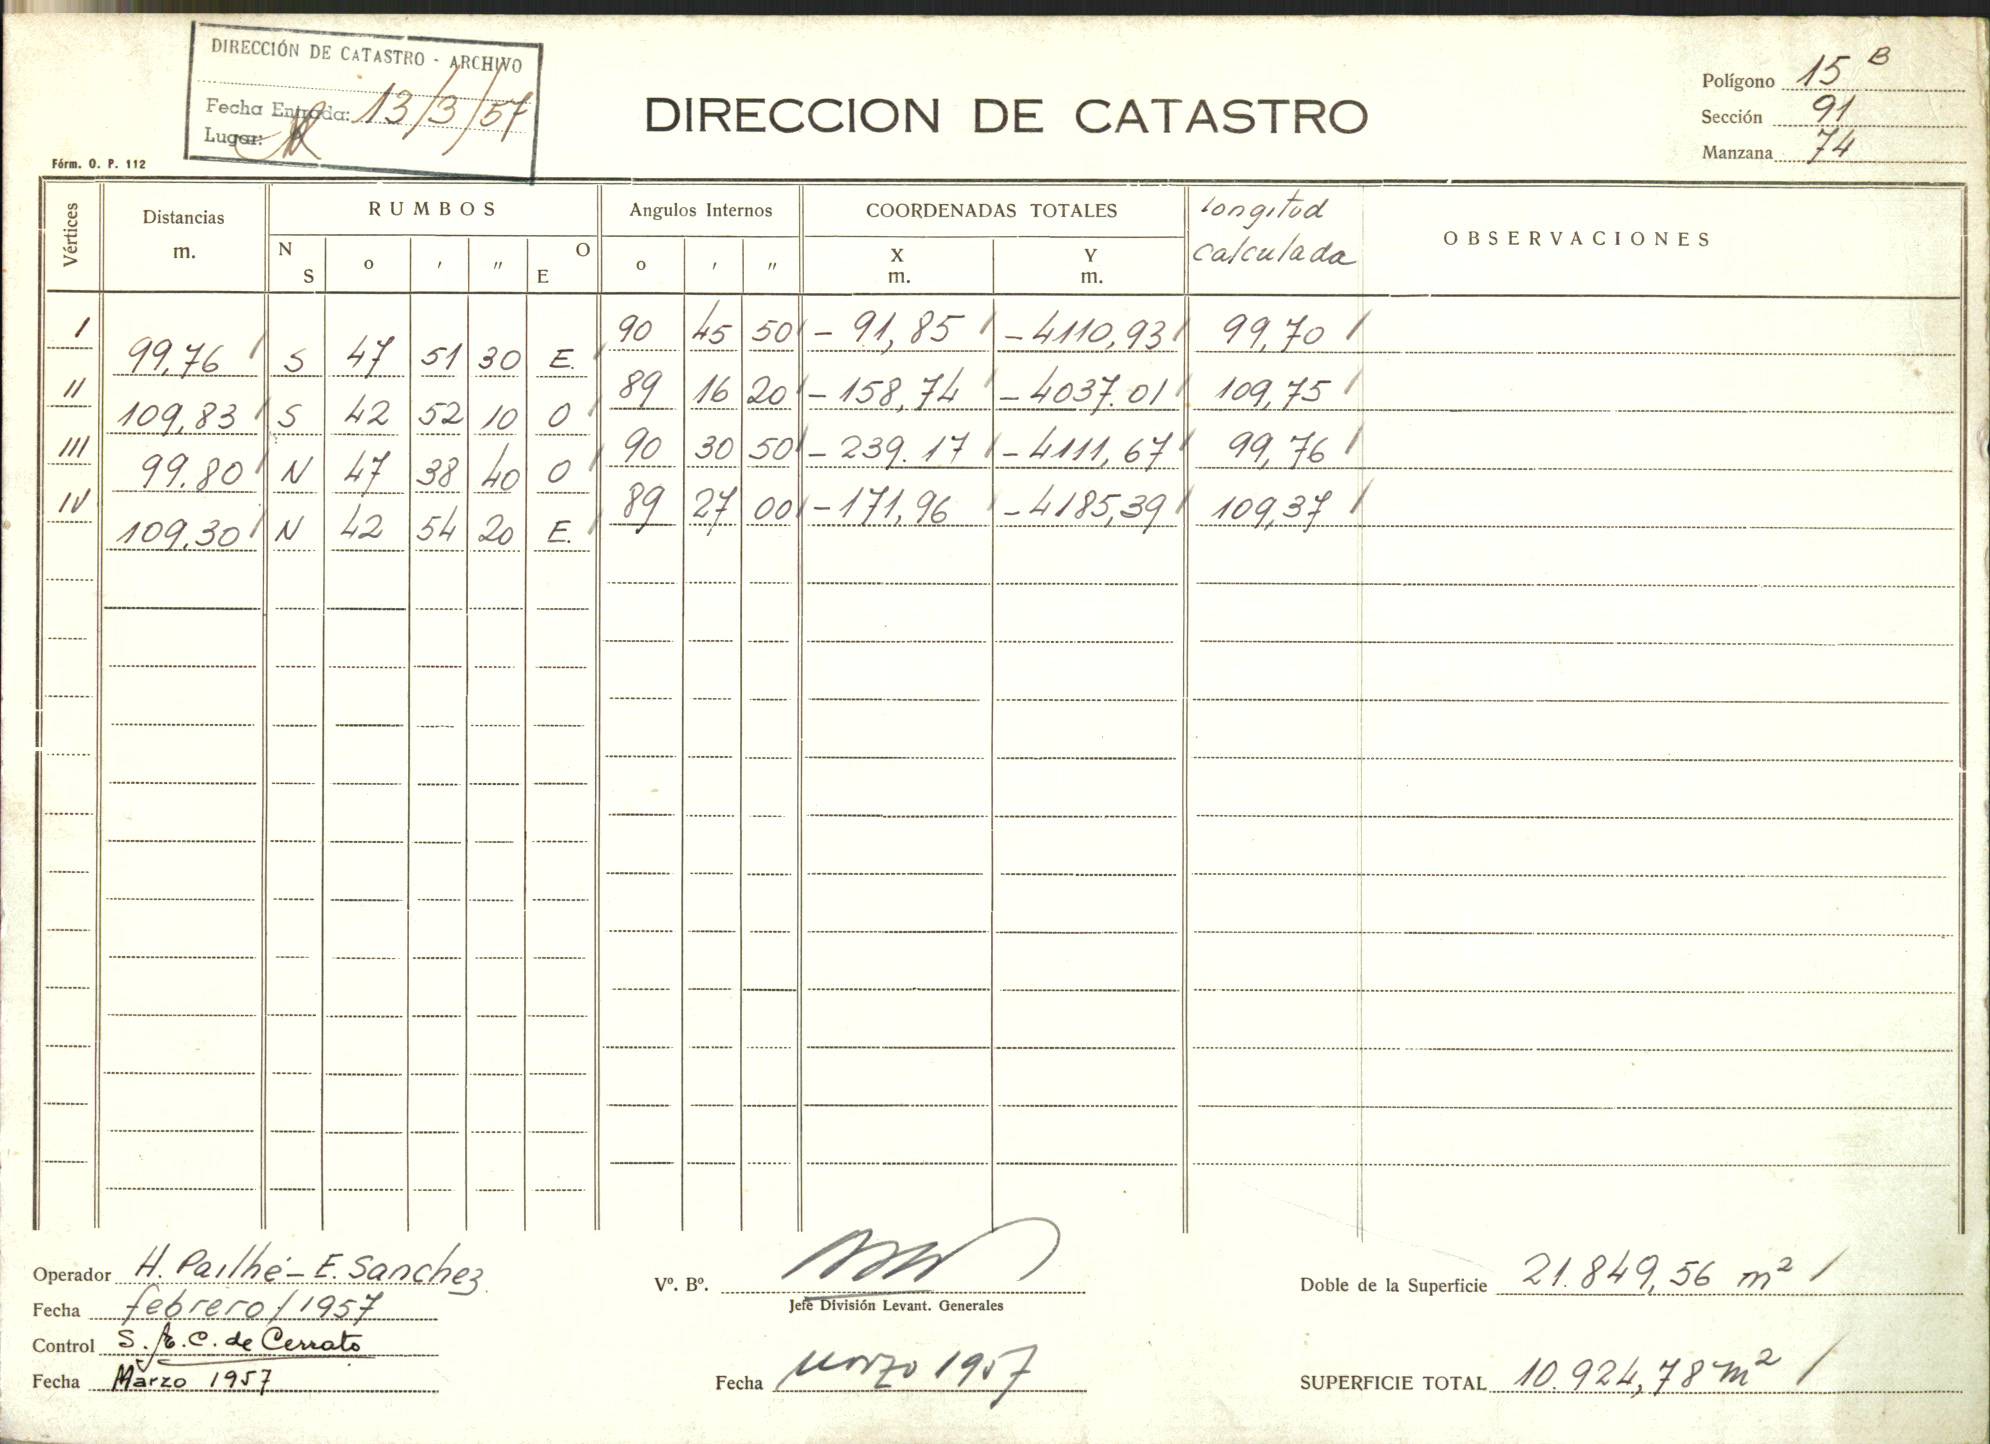 DIRECCIÓN DE CATASTRO - ARCHIVO
Fecha Entrada: 13/3/57
Lugar:
Fórm. O. P. 112
DIRECCION DE CATASTRO
Polígono 15 B
Sección 91
Manzana 74
Vértices Distancias m. RUMBOS Angulos Internos COORDENADAS TOTALES longitud calculada OBSERVACIONES
N S o ' " O E o ' " X m. Y m.
I 90 45 50 - 91,85 - 4110,93 99,70
99,76 S 47 51 30 E.
II 89 16 20 - 158,74 - 4037.01 109,75
109,83 S 42 52 10 O
III 90 30 50 - 239.17 - 4111,67 99,76
99.80 N 47 38 40 O
IV 89 27 00 - 171,96 - 4185,39 109,37
109,30 N 42 54 20 E.
Operador H. Pailhé - E. Sanchez
Fecha febrero / 1957
Control S. E. C. de Cerrato
Fecha Marzo 1957
Vº. Bº.
Jefe División Levant. Generales
Fecha Marzo 1957
Doble de la Superficie 21.849,56 m²
SUPERFICIE TOTAL 10.924,78 m²